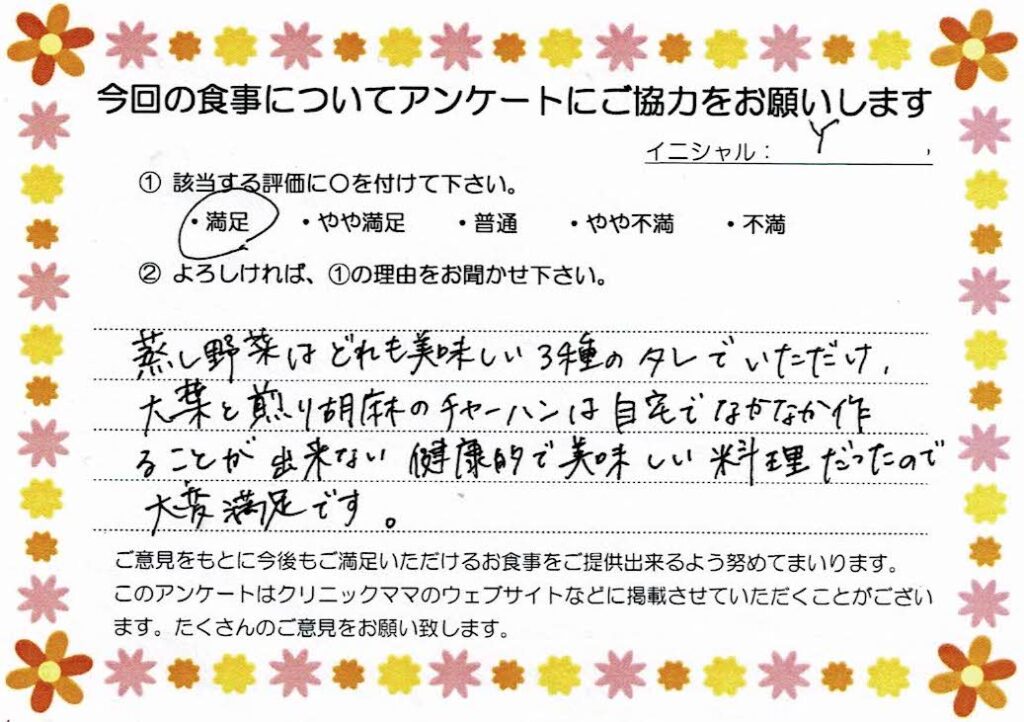 今回の食事についてアンケートにご協力をお願いします
イニシャル： Y ，
① 該当する評価に〇を付けて下さい。
・満足 ・やや満足 ・普通 ・やや不満 ・不満
② よろしければ、①の理由をお聞かせ下さい。
蒸し野菜はどれも美味しい3種のタレでいただけ、
大葉と煎り胡麻のチャーハンは自宅でなかなか作
ることが出来ない健康的で美味しい料理だったので
大変満足です。
ご意見をもとに今後もご満足いただけるお食事をご提供出来るよう努めてまいります。
このアンケートはクリニックママのウェブサイトなどに掲載させていただくことがござい
ます。たくさんのご意見をお願い致します。